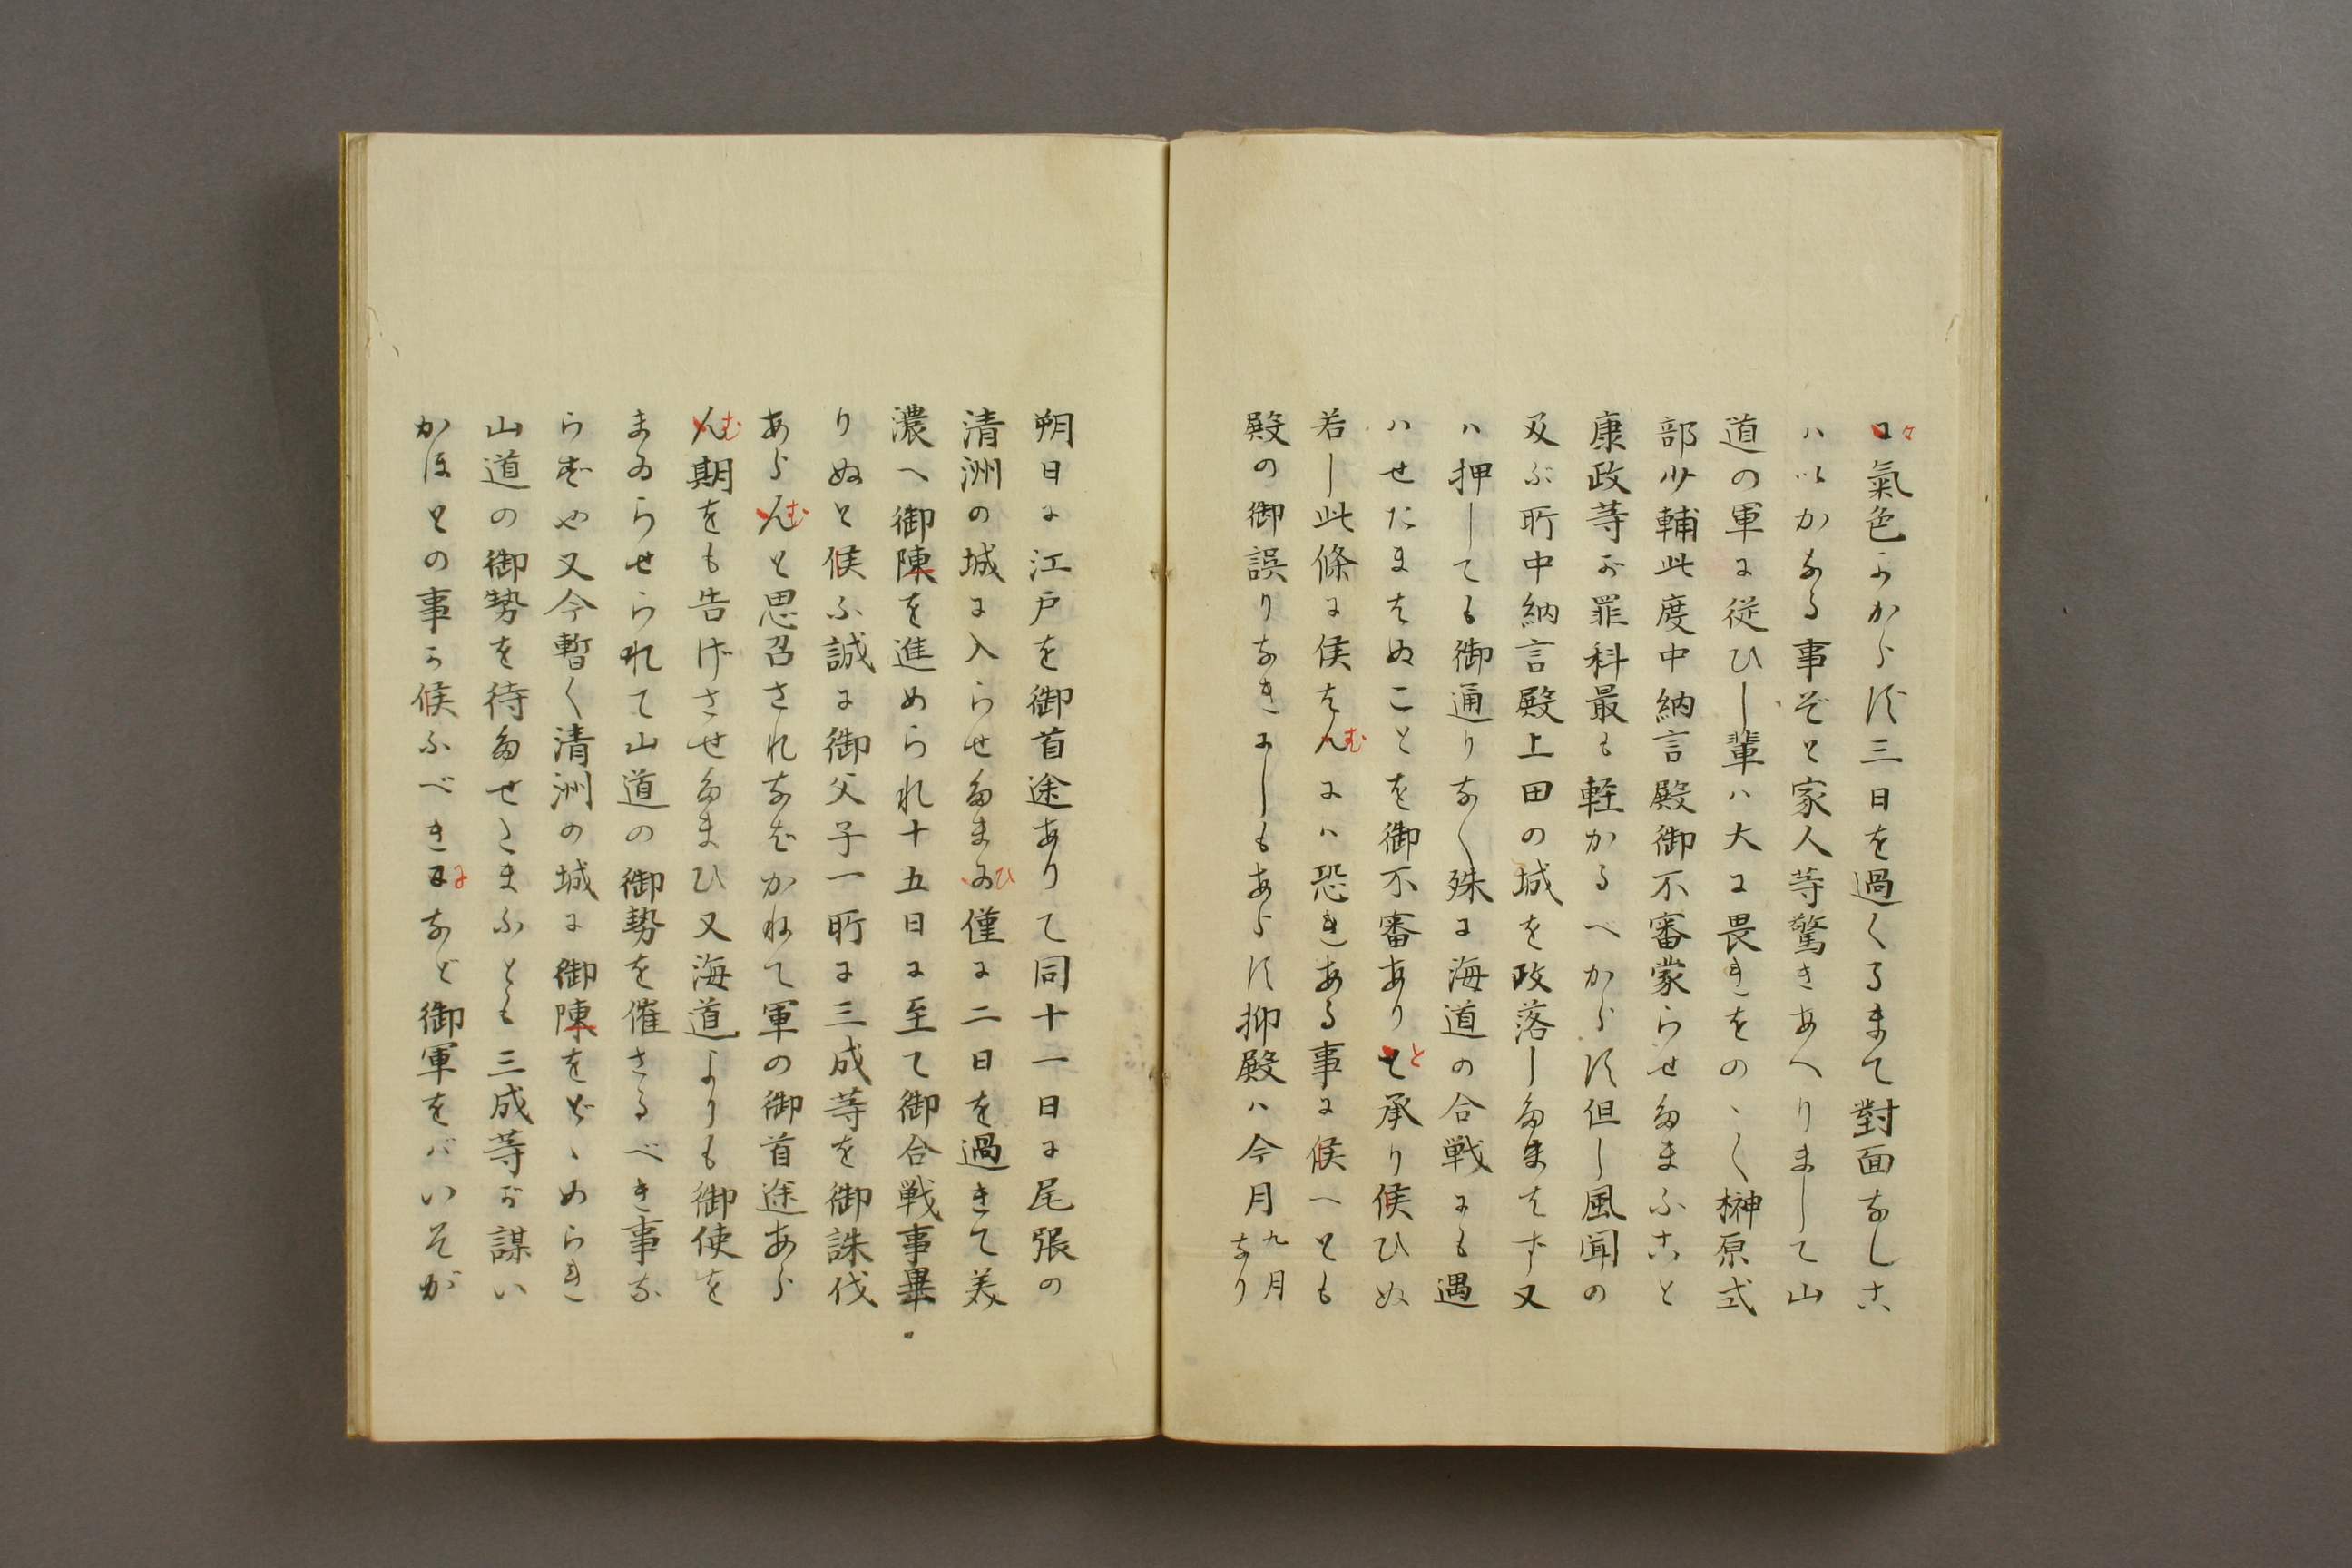 々氣色よからす三日を過くるまて對面なしこ
ハいかなる事ぞと家人等驚きあへりまして山
道の軍に従ひし輩ハ大に畏きをのゝく榊原式
部少輔此度中納言殿御不審蒙らせたまふこと
康政等が罪科最も軽かるべからす但し風聞の
及ぶ所中納言殿上田の城を攻落したまはず又
ハ押しても御通りなく殊に海道の合戦にも遇
ハせたまはぬことを御不審ありと承り候ひぬ
若し此條に候はむにハ恐きある事に候へとも
殿の御誤りなきにしもあらす抑殿ハ今月九月なり
朔日に江戸を御首途ありて同十一日に尾張の
清洲の城に入らせたまひ僅に二日を過きて美
濃へ御陳を進められ十五日に至て御合戦事畢
りぬと候ふ誠に御父子一所に三成等を御誅伐
あらむと思召されなばかねて軍の御首途あら
む期をも告げさせたまひ又海道よりも御使を
まゐらせられて山道の御勢を催さるべき事な
らずや又今暫く清洲の城に御陳をどゝめられ
山道の御勢を待たせたまふとも三成等が謀い
かほとの事か候ふべきになど御軍をバいそが